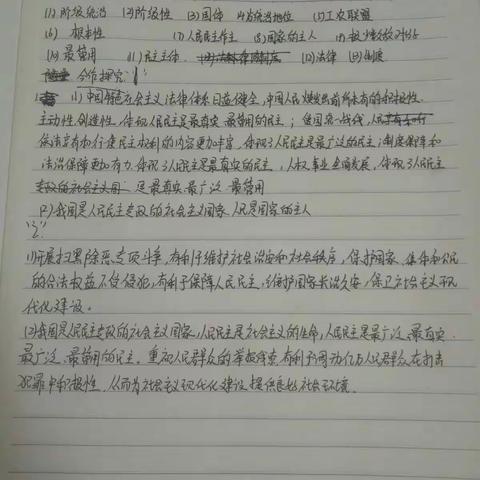 (1) 阶级统治 (2) 阶级性 (3) 国体 (4) 统治地位 (5) 工农联盟
(6) 根本性 (7) 人民民主作主 (8) 国家的主人 (9) 极少数敌对分子
(10) 最管用 (11) 民主主体 (12) 法律 (13) 制度
合作探究
(1) 中国特色社会主义法律体系日益健全,中国人民焕发出前所未有的积极性、
主动性、创造性,体现人民民主是最真实、最管用的民主;
依法享有和行使民主权利的内容更加丰富,体现了人民民主是最广泛的民主;制度保障和
法治保障更加有力,体现了人民民主是最真实的民主,人权事业全面发展,体现了人民民主
是最真实、最广泛、最管用
(2) 我国是人民民主专政的社会主义国家,人民是国家的主人
(1) 开展扫黑除恶专项斗争,有利于维护社会治安和社会秩序,保护国家、集体和公民
的合法权益不受侵犯,有利于保障人民民主,维护国家长治久安,保卫社会主义现
代化建设。
(2) 我国是人民民主专政的社会主义国家,人民民主是社会主义的生命,人民民主是最广泛、最真实、
最广泛、最管用的民主。重视人民群众的举报线索,有利于调动亿万人民群众在打击
犯罪中积极性,从而为社会主义现代化建设提供良好社会环境.